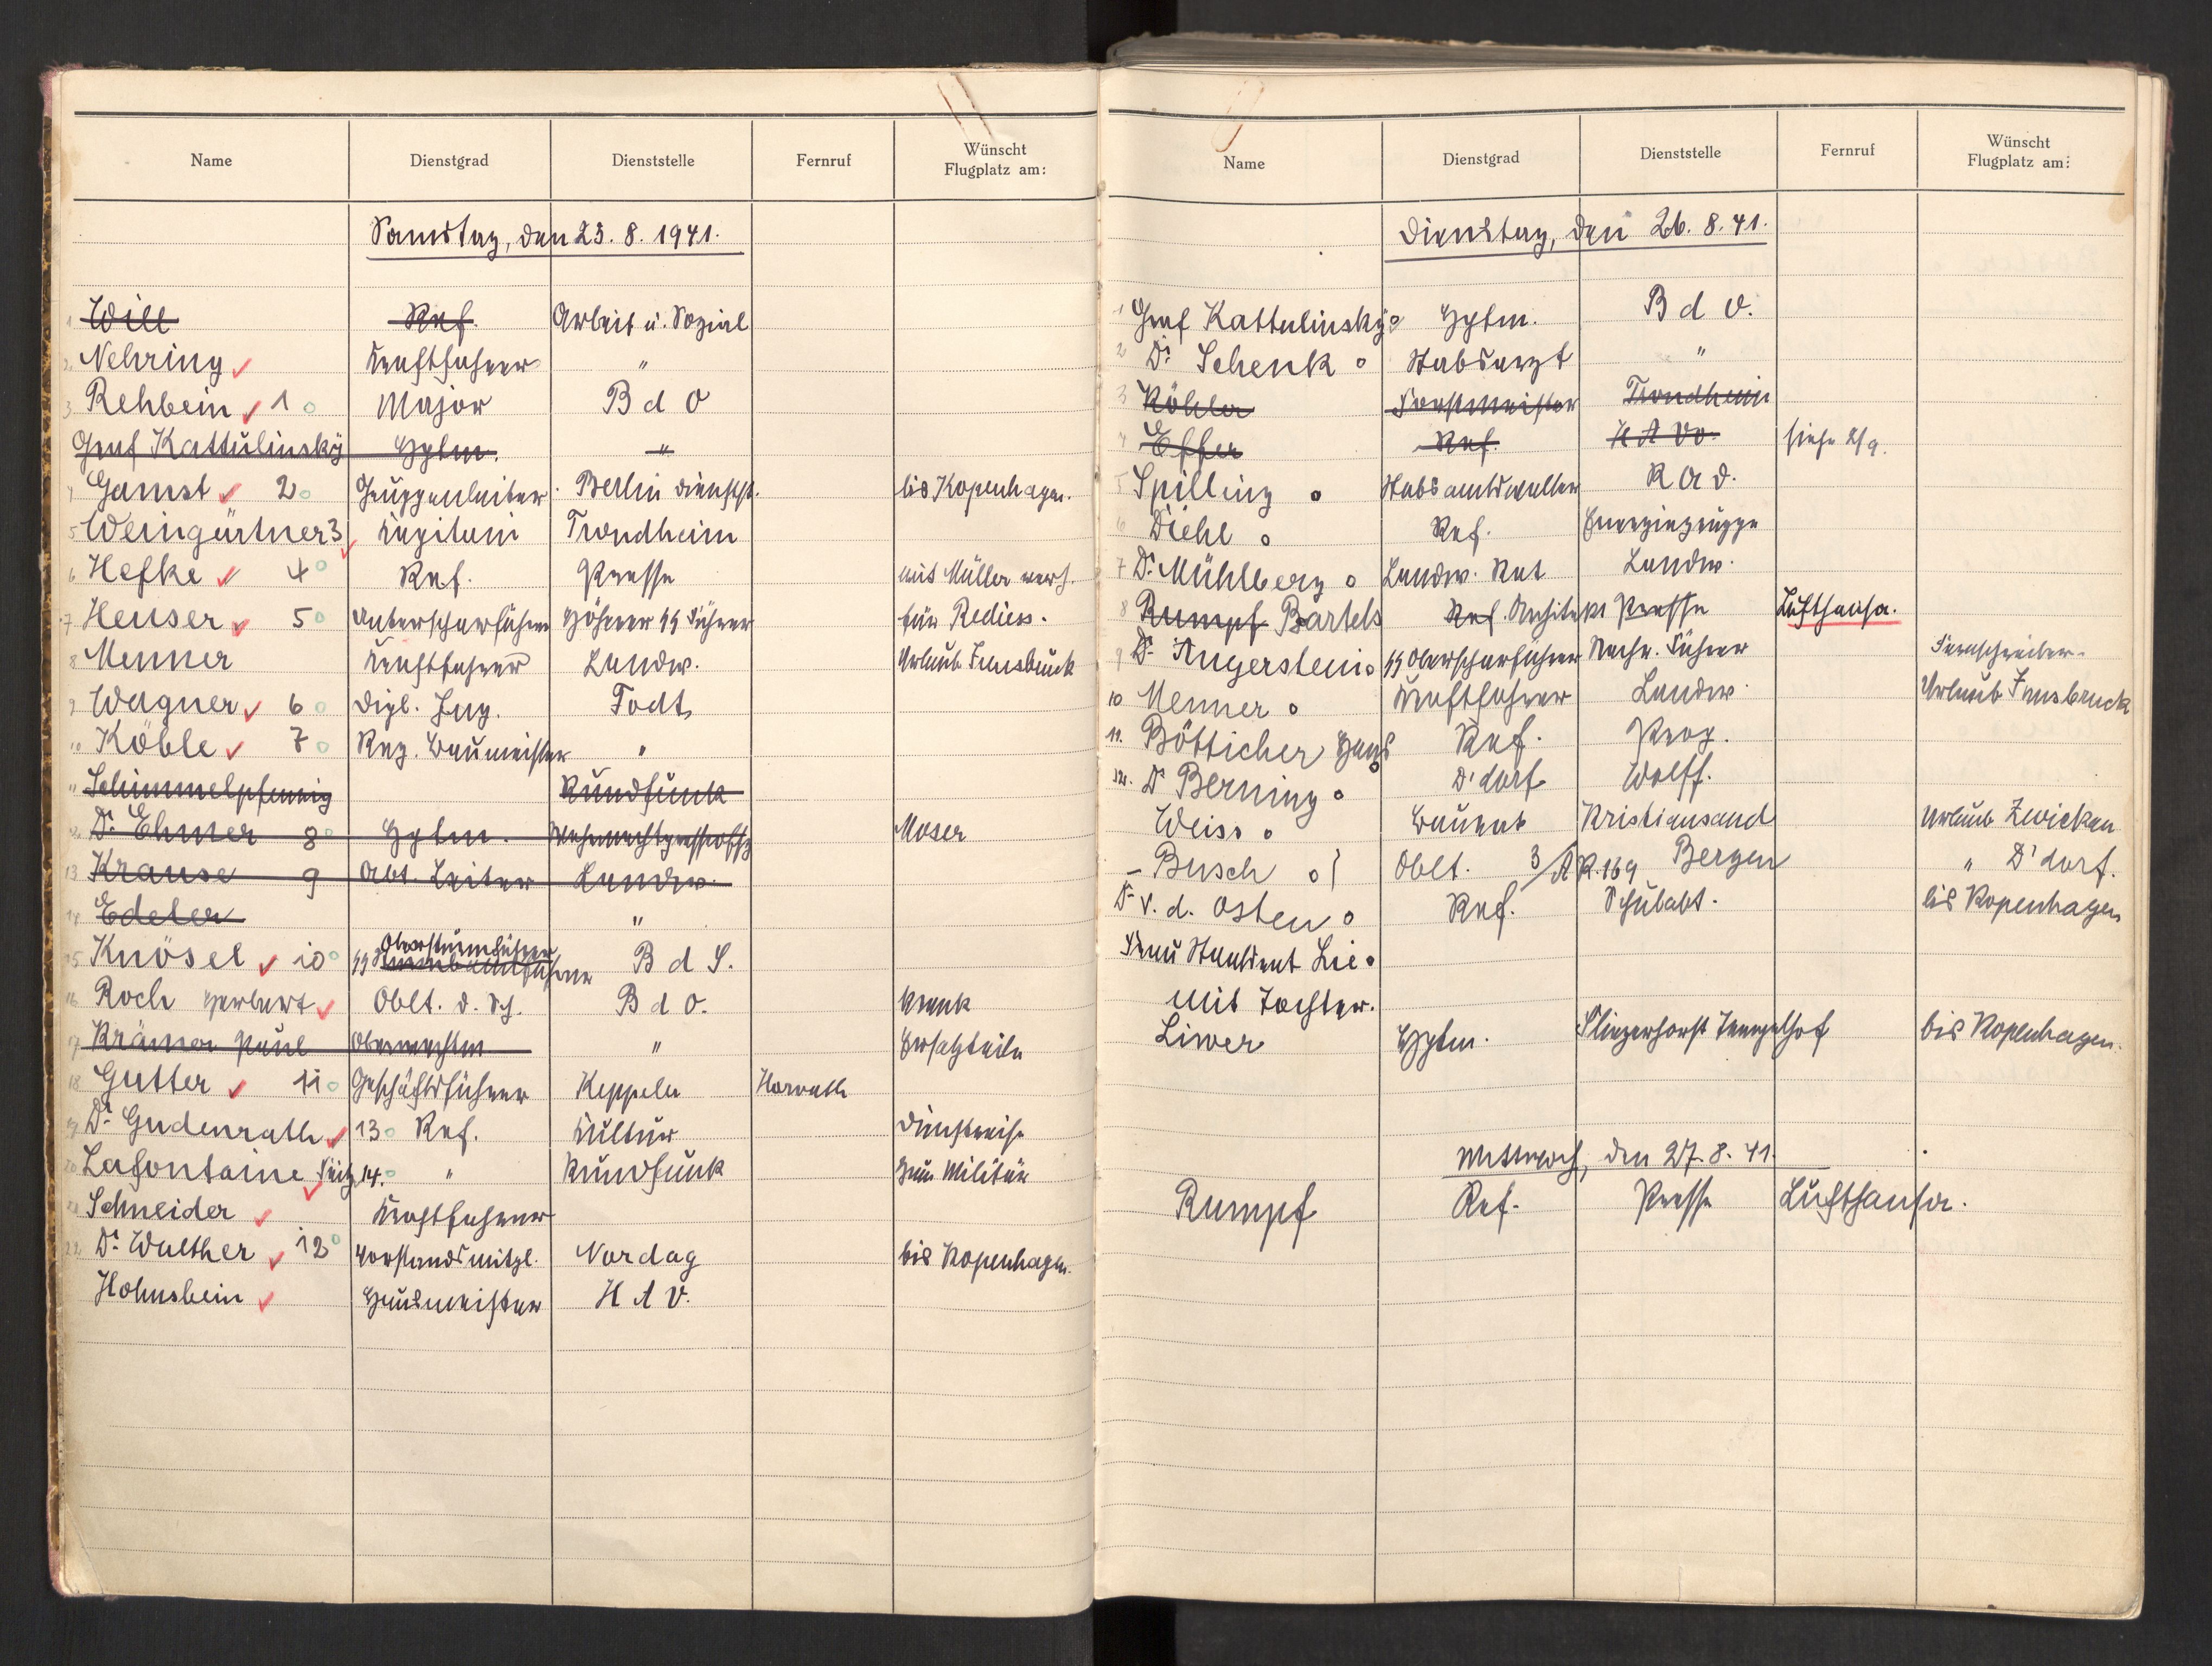 Name Dienstgrad Dienststelle Fernruf Wünscht Flugplatz am:
Samstag, den 23. 8. 1941.
1 Will Ref. Arbeit u. Sozial
2 Nehring Kraftfahrer "
3 Rehbein 1 Major B d O
Graf Kattulinsky Hptm. "
4 Gamst 2 Gruppenleiter Berlin Dienstst. bis Kopenhagen.
5 Weingärtner 3 Kapitain Trondheim
6 Hefke 4 Ref. Presse mit Müller
7 Heuser 5 Unterscharführer Höherer SS Führer für Rediess.
8 Menner Kraftfahrer Landw. Urlaub Innsbruck
9 Wagner 6 Dipl. Ing. Todt
10 Köble 7 Reg. Baumeister "
11 Schimmelpfennig Rundfunk
12 Dr. Ehmer 8 Hptm. Moser
13 Krause 9 Abt. Leiter Landw.
14 Edeler "
15 Knösel 10 SS Obersturmführer B d S.
16 Roch Herbert Oblt. d. Sch. B d O. krank
17 Krämer Paul Oberwachtm " Ersatzteile
18 Gutter 11 Geschäftsführer Keppeler Horvath
19 Dr. Gudenrath 13 Ref. Kultur Dienstreise
20 Lafontaine Fritz 14. " Rundfunk zum Militär
21 Schneider Kraftfahrer
22 Dr. Walther 12 Vorstandsmitgl. Nordag bis Kopenhagen.
Hohnsbein Hausmeister H A V.
Name Dienstgrad Dienststelle Fernruf Wünscht Flugplatz am:
Dienstag, den 26. 8. 41.
1 Graf Kattulinsky Hptm. B d O.
2 Dr. Schenk Stabsarzt "
3 Köhler Forstmeister Trondheim
4 Effer Ref. H A Vo. siehe 2/9.
5 Spilling Stabsamtswalter R A D.
6 Diehl Ref. Energiegruppe
7 Dr. Mühlberg Landw. Rat Landw.
8 Rumpf Bartels Ref. Architekt Presse Lufthansa.
9 Dr. Angerstein SS Oberscharführer Nachr. Führer Fernschreiber.
10 Menner Kraftfahrer Landw. Urlaub Innsbruck
11. Bötticher Hans Ref. Prop.
12. Dr Berning D'dorf Wolff.
Weiss Baurat Kristiansand Urlaub Zwickau
– Busch Oblt. 3/A R. 169 Bergen " D'dorf.
Dr. v. d. Osten Ref. Schulabt. bis Kopenhagen
Frau Staatsrat Lie
mit Tochter.
Liwer Hptm. Fliegerhorst Tempelhof bis Kopenhagen.
Mittwoch, den 27. 8. 41.
Rumpf Ref. Presse Lufthansa.